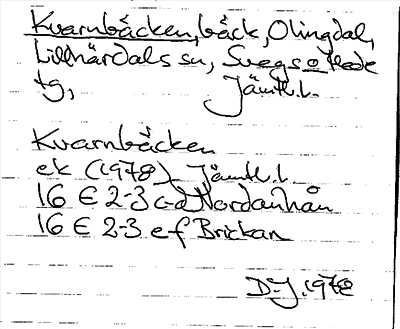 Kvarnbäcken, bäck, Olingdal,
Lillhärdals sn, Svegs o Hede
tg, Jämtl. l.
Kvarnbäcken
ek (1978) Jämtl. l.
16 E 2-3 c-d Nordanhån
16 E 2-3 e f Brickan
D.J. 1978